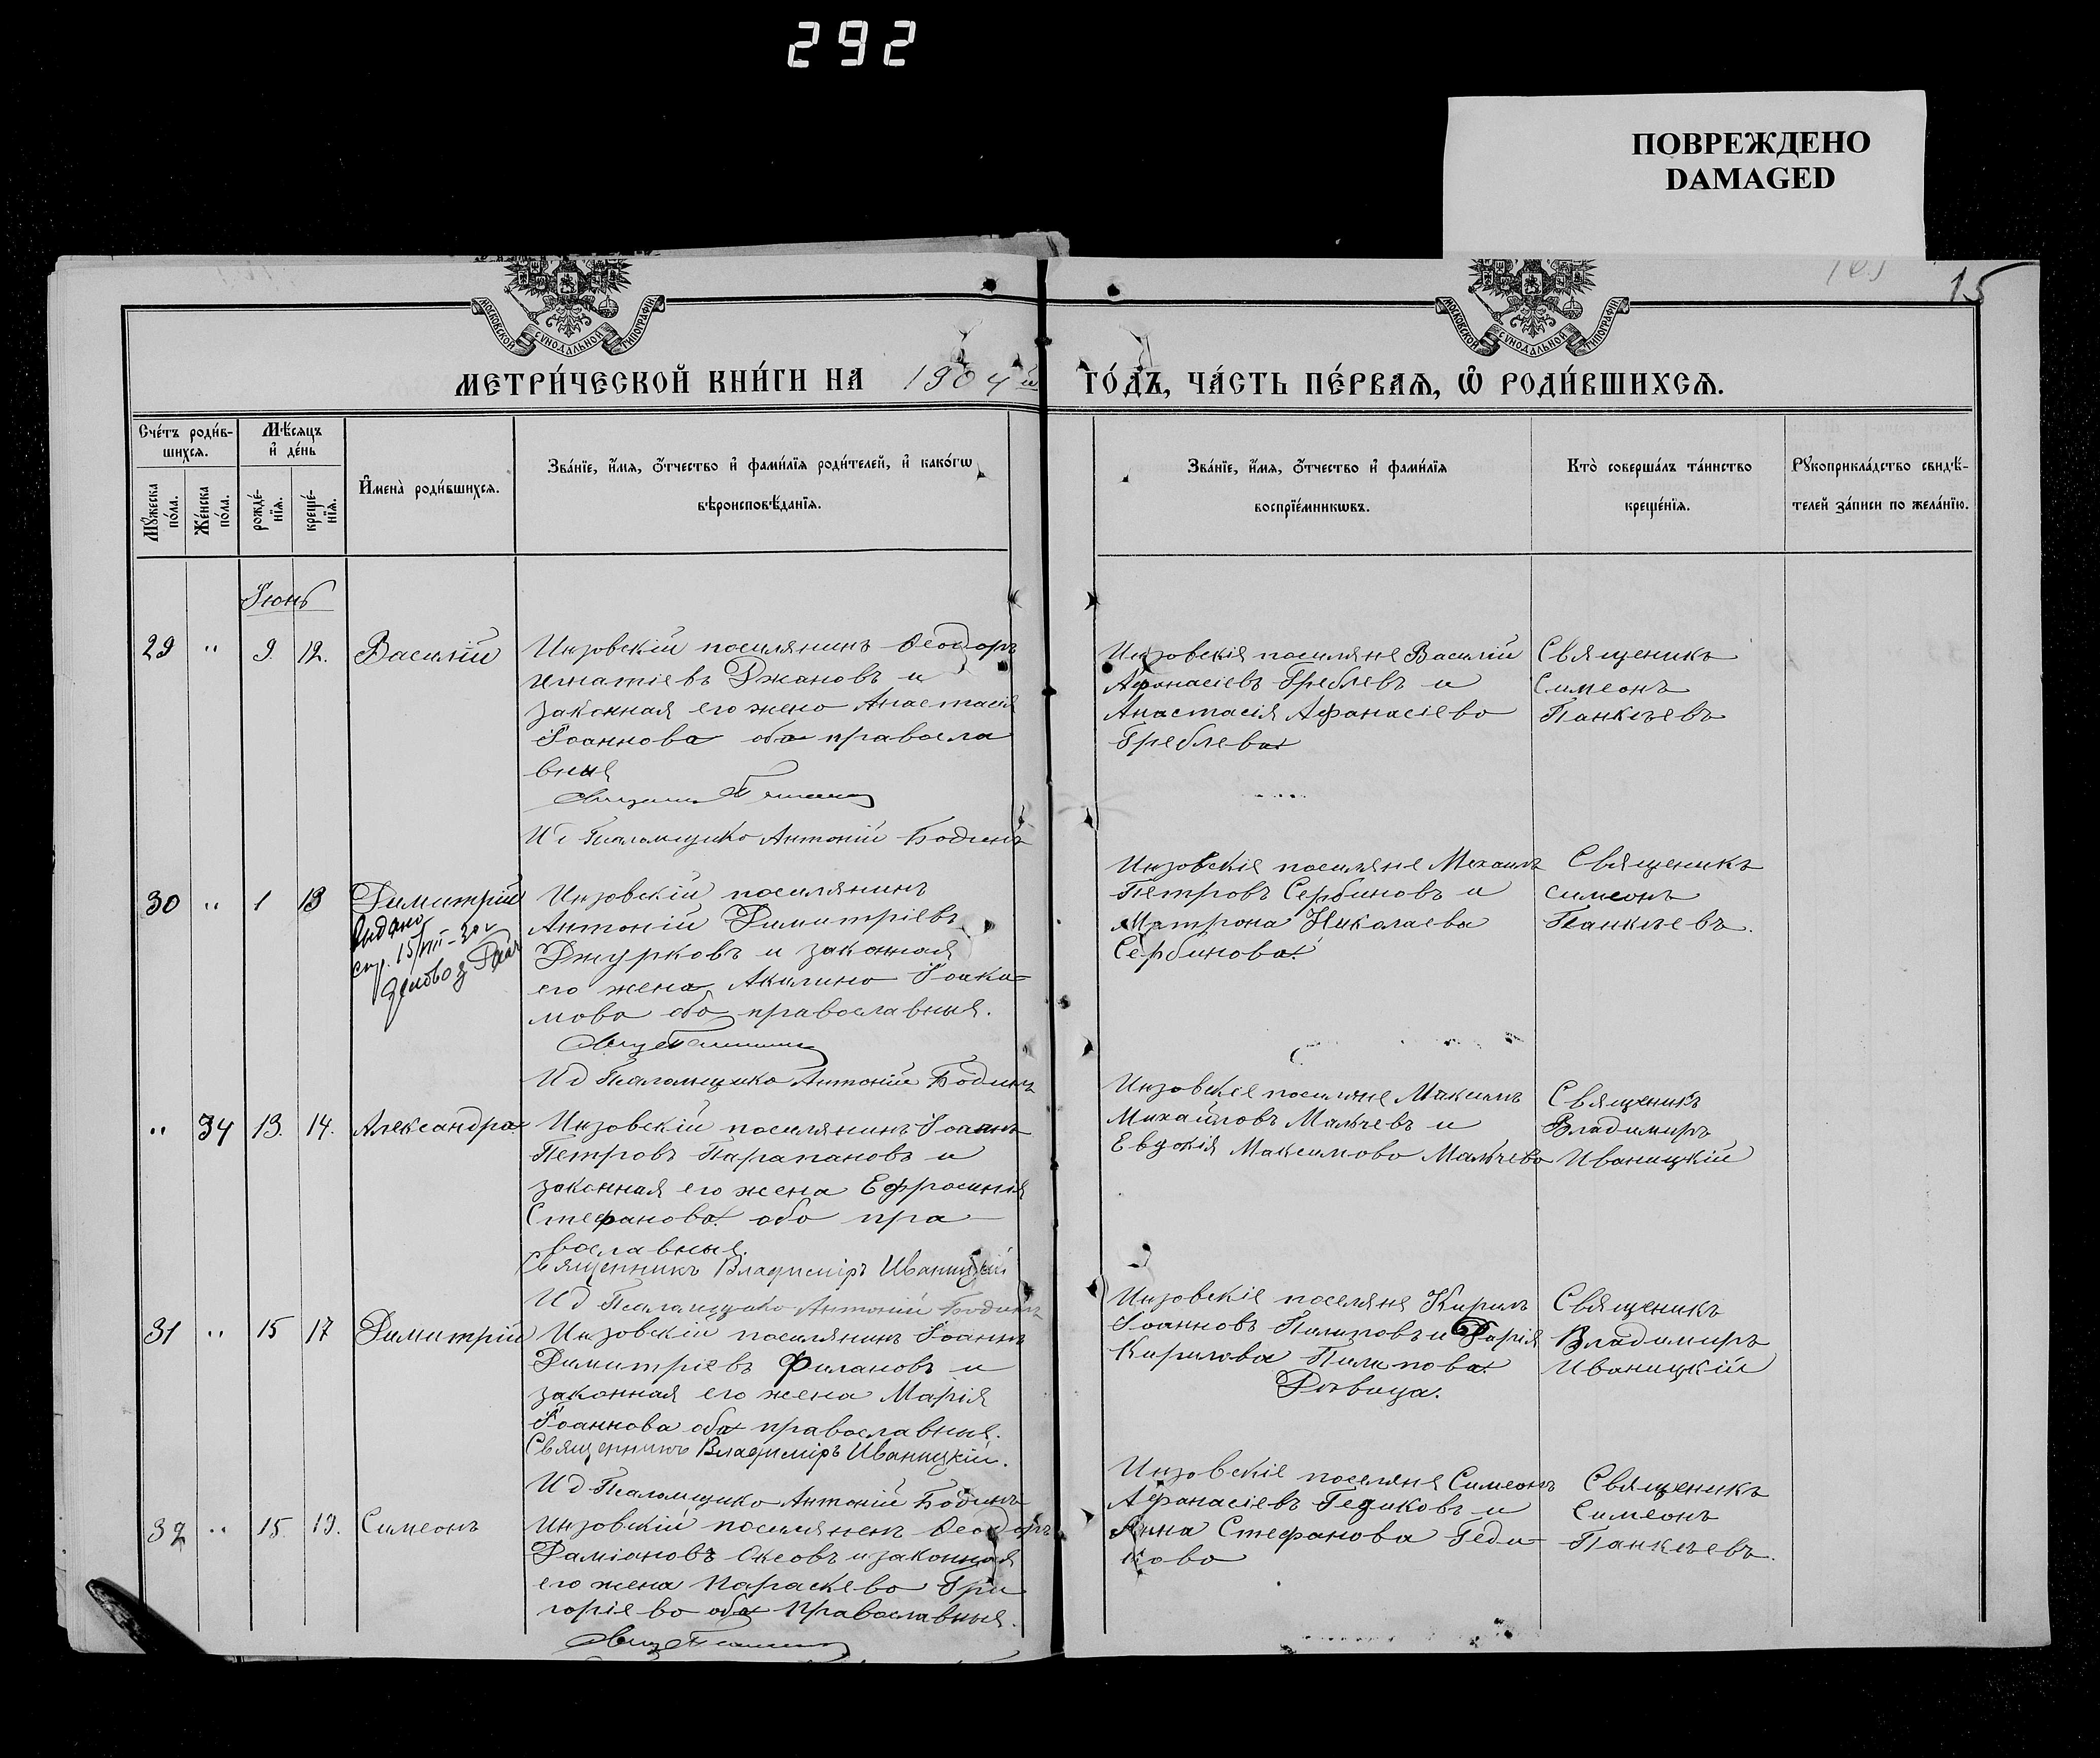 292
ПОВРЕЖДЕНО
DAMAGED
15
МОСКОВСКОЙ СѴНОДАЛЬНОЙ ТИПОГРАФІИ
МОСКОВСКОЙ СѴНОДАЛЬНОЙ ТИПОГРАФІИ
МЕТРИ́ЧЕСКОЙ КНИ́ГИ НА 1904 й ГО́ДЪ, ЧА́СТЬ ПЕ́РВАѦ, Ѽ РОДИ́ВШИХСѦ.
Сче́тъ роди́в-
шихсѧ.
Мꙋ́жеска по́ла.
Же́нска по́ла.
Мѣ́сѧцъ и҆ де́нь
рожде́-нїѧ.
креще́-нїѧ.
И҆мена̀ роди́вшихсѧ.
Зва́нїе, и҆́мѧ, ѻ҆́тчество и҆ фами́лїѧ роди́телей, и҆ како́гѡ
вѣроисповѣ́данїѧ.
Зва́нїе, и҆́мѧ, ѻ҆́тчество и҆ фами́лїѧ
воспрїе́мникѡвъ.
Кто̀ соверша́лъ та́инство
креще́нїѧ.
Рꙋкоприкла́дство свидѣ́-
телей за́писи по жела́нїю.
Іюнь
29 " 9. 12. Василій
Инзовскій поселянинъ Ѳеодоръ
Игнатіевъ Джановъ и
законная его жено Анастасія
Іоаннова оба правосла
вныя
И д Псаломщико Антоній Бодинъ
Инзовскія поселяне Василій
Афонасіевъ Греблевъ и
Анастасія Афанасіево
Греблева
Священикъ
Симеонъ
Панкѣевъ
30 " 1 13 Димитрій
Выдано
спр. 15/VIII-30 г
Инзовскій поселянинъ
Антоній Димитріевъ
Джурковъ и законная
его жена Акилино Іоаки=
мова оба православныя.
И д Псаломщико Антоній Бодинъ
Инзовскія поселяне Михаилъ
Петровъ Сербиновъ и
Матрона Николаева
Сербинова
Священикъ
Симеонъ
Панкѣевъ.
" 34 13. 14. Александра
Инзовскій поселянинъ Іоаннъ
Петровъ Парапановъ и
законная его жена Ефросинія
Стефанова обо пра
вославныя.
Священникъ Владиміръ Иваницкій
И д Псаломщико Антоній Бодинъ
Инзовскіе поселяне Максимъ
Михайловъ Мальчевъ и
Евдокія Максимово Мальчево
Священикъ
Владимиръ
Иваницкій
31 " 15 17 Димитрій
Инзовскій поселянинъ Іоаннъ
Димитріевъ Филановъ и
законная его жена Марія
Іоаннова оба православныя.
Священникъ Владиміръ Иваницкій.
И д Псаломщико Антоній Бодинъ
Инзовскіе поселяне Кирилъ
Іоанновъ Пилиповъ и Дарія
Кирилова Пилипова
Дѣвица.
Священикъ
Владимиръ
Иваницкій
32 " 15. 19. Симеонъ
Инзовскій поселяненъ Ѳеодоръ
Даміановъ Оксовъ и законная
его жена Параскево Гри
горіево оба Православныя.
Инзовскіе поселяне Симеонъ
Афанасіевъ Гедиковъ и
Анна Стефанова Геди
ково
Священикъ
Симеонъ
Панкѣевъ.